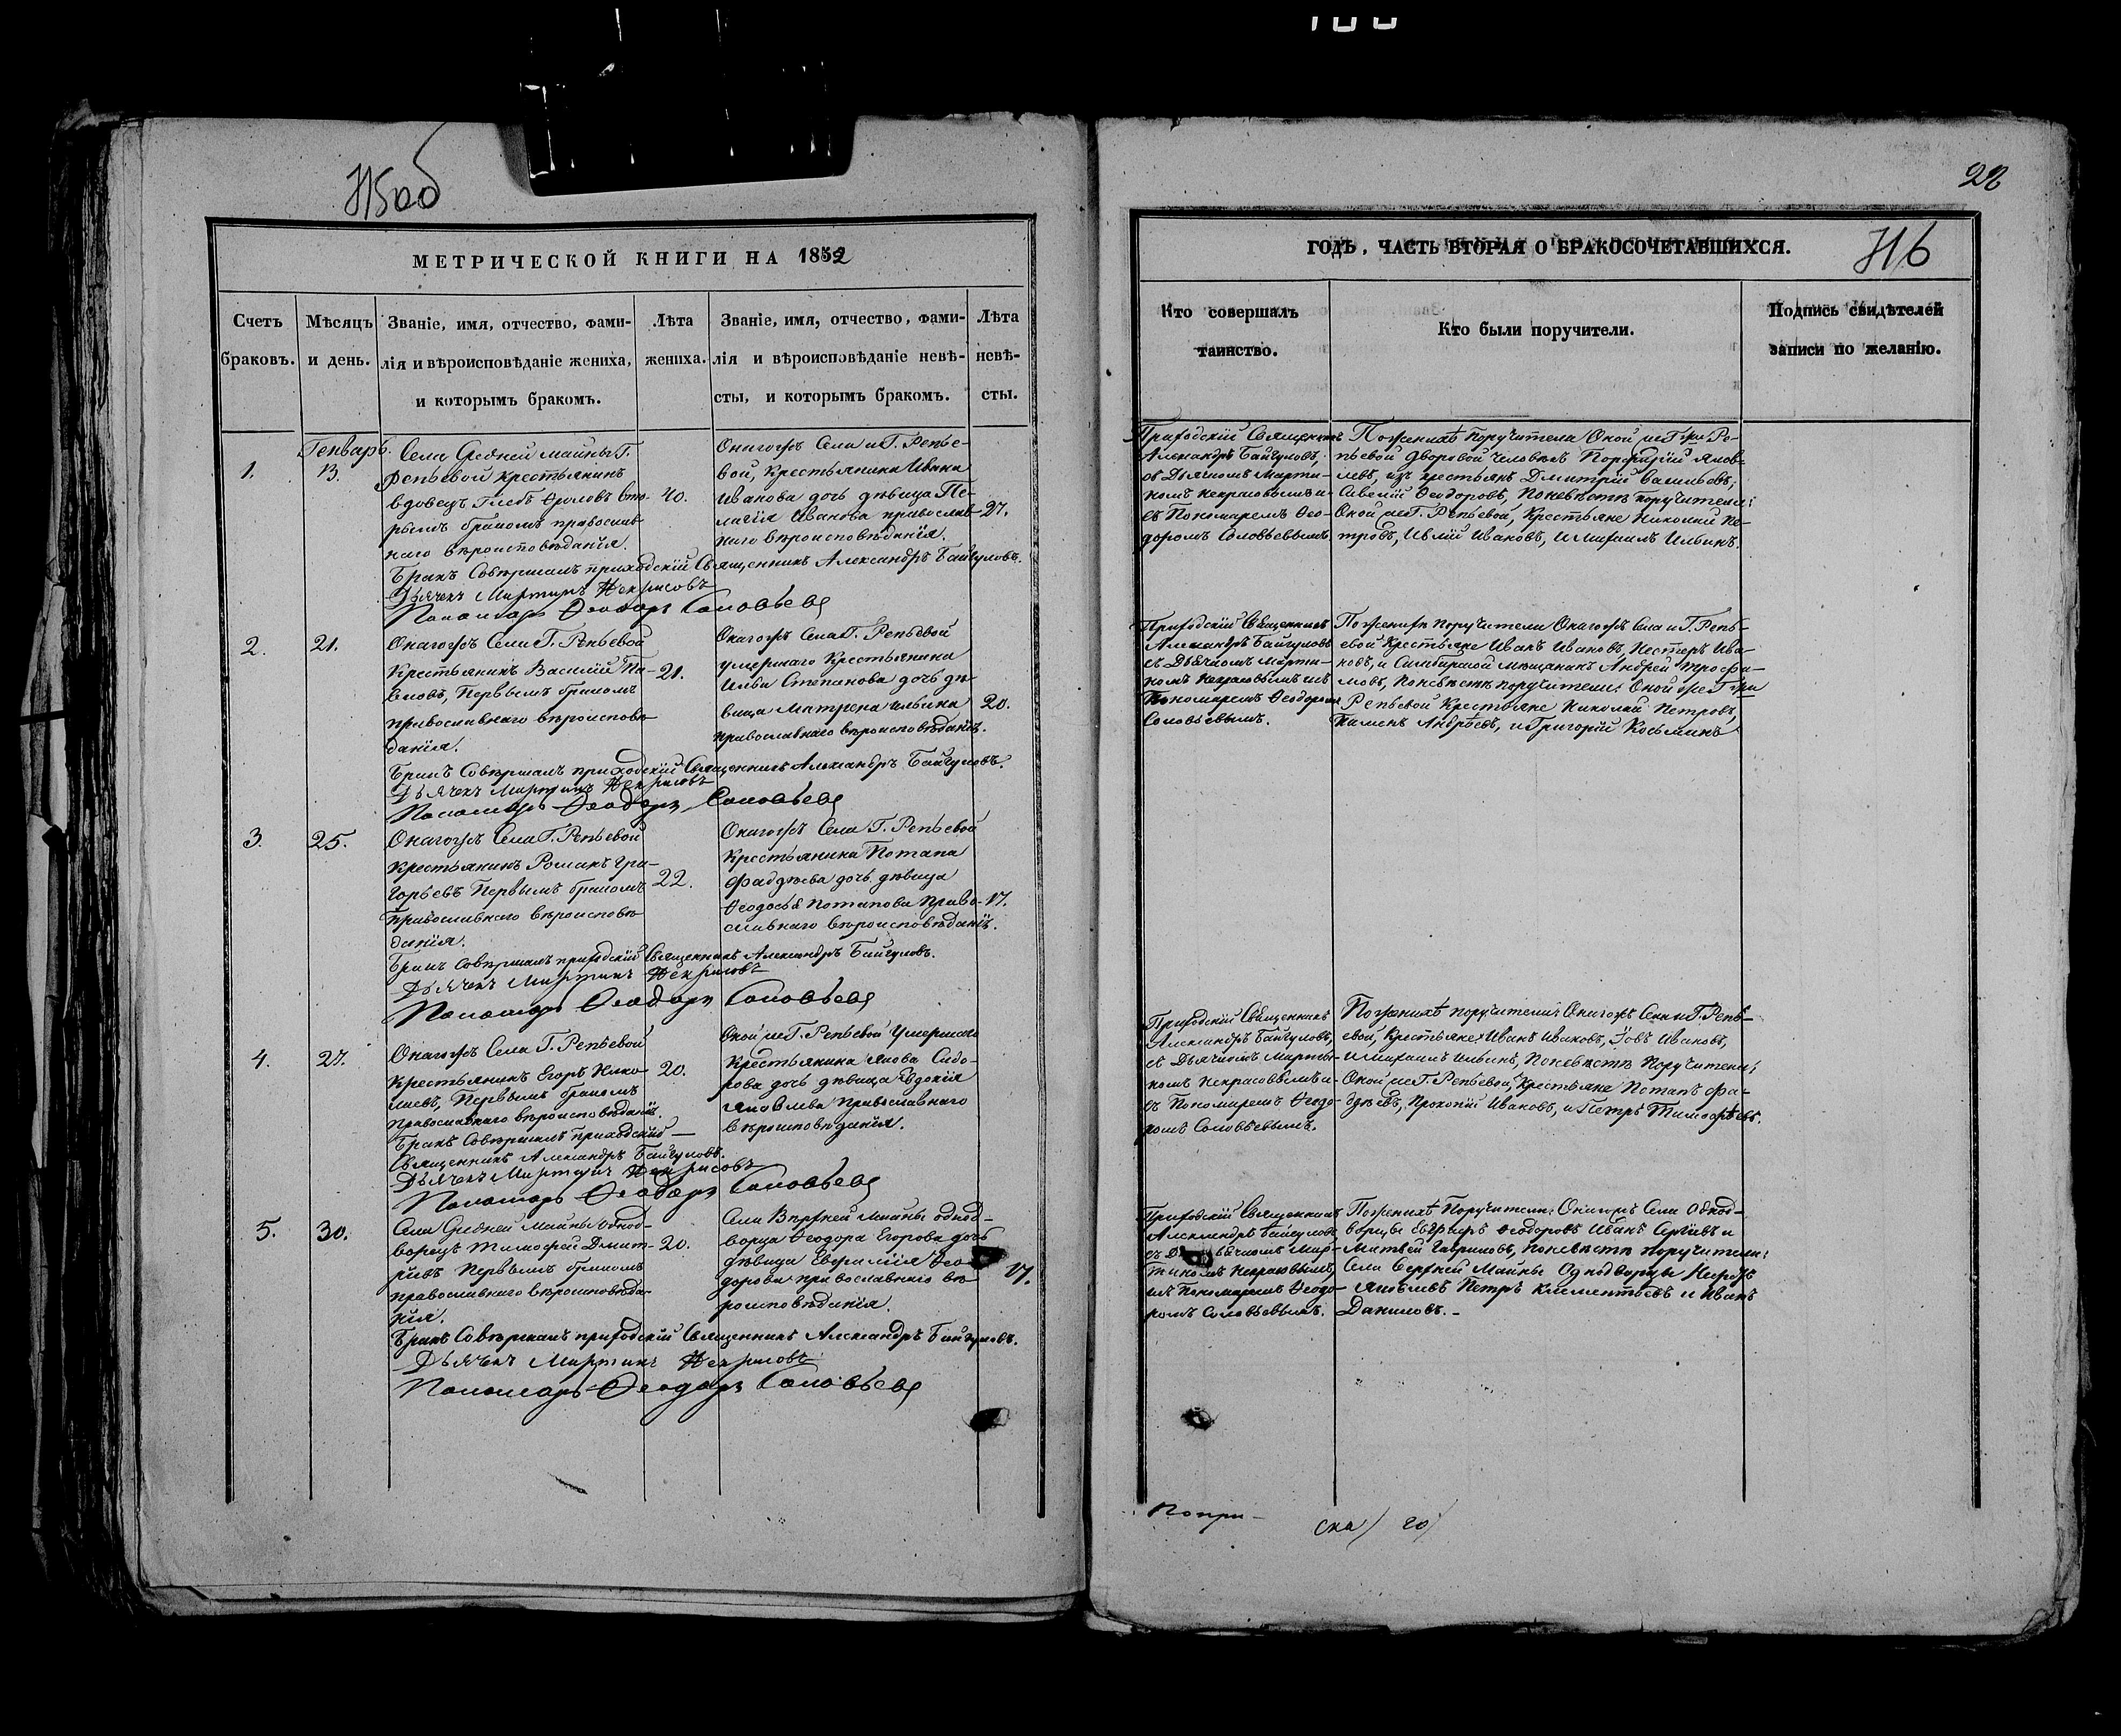 715 об
МЕТРИЧЕСКОЙ КНИГИ НА 1852
Счетъ браковъ.
Мѣсяцъ и день.
Званіе, имя, отчество, фами-
лія и вѣроисповѣданіе жениха,
и которымъ бракомъ.
Лѣта
жениха.
Званіе, имя, отчество, фами-
лія и вѣроисповѣданіе невѣ-
сты, и которымъ бракомъ.
Лѣта
невѣ-
сты.
1.
Генварь
13.
Села Средней Майны Г.
Репьевой крестьянинъ
вдовецъ Глебъ Фроловъ вто-
рымъ бракомъ православ-
наго вѣроисповѣданія.
40.
Онагожъ Села и Г. Репье-
вой, Крестьянина Ивана
Иванова дочь дѣвица Пе-
лагія Иванова православ-
наго вѣроисповѣданія.
27.
Бракъ Совершалъ приходскій Священникъ Александръ Байгуловъ.
Дьячекъ Мартинъ Некрасовъ
Пономарь Ѳеодоръ Соловьевъ
2.
21.
Онагожъ Села Г. Репьевой
Крестьянинъ Василій Па-
вловъ, Первымъ бракомъ
православнаго вѣроисповѣ-
данія.
21.
Онагожъ Села Г. Репьевой
умершаго Крестьянина
Ильи Степанова дочь дѣ-
вица Матрена Ильина
православнаго вѣроисповѣданія.
20.
Бракъ Совершалъ приходскій Священникъ Александръ Байгуловъ.
Дьячекъ Мартинъ Некрасовъ
Пономарь Ѳеодоръ Соловьевъ
3.
25.
Онагожъ Села Г. Репьевой
Крестьянинъ Романъ Гри-
горьевъ Первымъ бракомъ
православнаго вѣроисповѣ-
данія.
22.
Онагожъ Села Г. Репьевой
Крестьянина Потапа
Фаддѣева дочь дѣвица
Ѳеодосья Потапова право-
славнаго вѣроисповѣданія.
17.
Бракъ Совершалъ приходскій Священникъ Александръ Байгуловъ.
Дьячекъ Мартинъ Некрасовъ
Пономарь Ѳеодоръ Соловьевъ
4.
27.
Онагожъ Села Г. Репьевой
Крестьянинъ Егоръ Нико-
лаевъ, Первымъ бракомъ
православнаго вѣроисповѣданія.
20.
Оной же Г. Репьевой умершаго
Крестьянина Якова Сидо-
рова дочь дѣвица Евдокія
Яковлева православнаго
вѣроисповѣданія.
Бракъ Совершалъ приходскій
Священникъ Александръ Байгуловъ.
Дьячекъ Мартинъ Некрасовъ
Пономарь Ѳеодоръ Соловьевъ
5.
30.
Села Средней Майны Однод-
ворецъ Тимофей Дмит-
ріевъ Первымъ бракомъ
православнаго вѣроисповѣда-
нія.
20.
Села Верхней Майны однод-
ворца Ѳеодора Егорова дочь
дѣвица Ѳео-
дорова православнаго вѣ-
роисповѣданія.
17.
Бракъ Совершалъ приходскій Священникъ Александръ Байгуловъ.
Дьячекъ Мартинъ Некрасовъ
Пономарь Ѳеодоръ Соловьевъ
22
716
ГОДЪ, ЧАСТЬ ВТОРАЯ О БРАКОСОЧЕТАВШИХСЯ.
Кто совершалъ
таинство.
Кто были поручители.
Подпись свидѣтелей
записи по желанію.
Приходскій Священникъ
Александръ Байгуловъ,
съ Дьячкомъ Марти-
номъ Некрасовымъ и
съ Пономаремъ Ѳео-
доромъ Соловьевымъ
По женихѣ поручители Оной же Г-жи Ре-
пьевой дворовой человѣкъ Порфирій Яков-
левъ, изъ крестьянъ Дмитрій Васильевъ,
Савелій Ѳеодоровъ, По невѣстѣ поручители:
Оной же Г. Репьевой, Крестьяне Николай Пе-
тровъ, Иванъ, и Михаилъ Ильинъ.
Приходскій Священникъ
Александръ Байгуловъ
съ Дьячкомъ Марти-
номъ Некрасовымъ и съ
Пономаремъ Ѳеодоромъ
Соловьевымъ.
По женихѣ поручители Онагожъ Села и Г. Репь-
евой Крестьяне Иванъ Ивановъ, Несторъ Ива-
новъ, и Симбирской мещанинъ Андрей Трофи-
мовъ, По невѣстѣ поручители: Оной же Г-жи
Репьевой Крестьяне Николай Петровъ,
Пименъ Андрѣевъ, и Григорій Косьминъ
Приходскій Священникъ
Александръ Байгуловъ,
съ Дьячкомъ Марти-
номъ Некрасовымъ и
съ Пономаремъ Ѳеодо-
ромъ Соловьевымъ.
По женихѣ поручители: Онагожъ Села и Г. Репь-
евой, Крестьяне: Иванъ Ивановъ, Іовъ Ивановъ,
и Михаилъ Ильинъ, По невѣстѣ Поручители:
Оной же Г. Репьевой, Крестьяне Потапъ Фа-
ддѣевъ, Прокопій Ивановъ, и Петръ Тимофѣевъ.
Приходскій Священникъ
Александръ Байгуловъ
съ Дьячкомъ Мар-
тиномъ Некрасовымъ,
и съ Пономаремъ Ѳеодо-
ромъ Соловьевымъ.
По женихѣ Поручители: Онагожъ Села Однод-
ворцы Ѳеодоровъ Иванъ Сергѣевъ и
Матвей Гавриловъ, По невѣстѣ поручители:
Села Верхней Майны Однодворцы
Яковлевъ Петръ Климентьевъ и Иванъ
Даниловъ.
По при-
ска